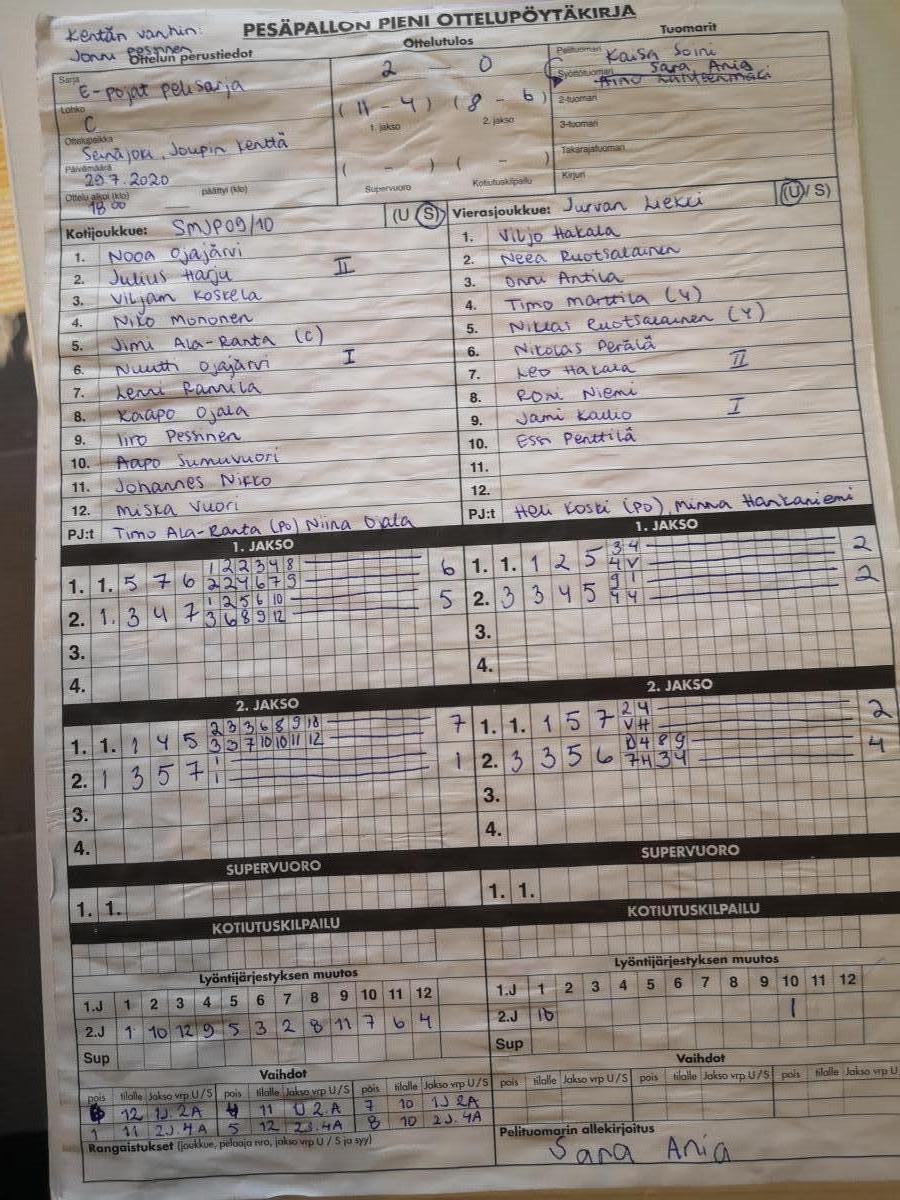 Kentän vanhin:
Jonni Pessinen
PESÄPALLON PIENI OTTELUPÖYTÄKIRJA
Ottelun perustiedot
Ottelutulos
Tuomarit
Sarja
E-pojat pelisarja
Lohko
C
Ottelupaikka
Seinäjoki, Joupin kenttä
Päivämäärä
29.7.2020
Ottelu alkoi (klo) päättyi (klo)
18 00
2 - 0
(11 - 4) (8 - 6)
1. jakso 2. jakso
( - ) ( - )
Supervuoro Kotiutuskilpailu
Pelituomari Kaisa Soini
Syöttötuomari Sara Ania
Aino
2-tuomari
3-tuomari
Takarajatuomari
Kirjuri
Kotijoukkue: SMJP09/10 (U S)
1. Nooa Ojajärvi
2. Julius Harju II
3. Viljam Koskela
4. Niko Mononen
5. Jimi Ala-Ranta (C)
6. Nuutti Ojajärvi I
7. Lenni Rannila
8. Kaapo Ojala
9. Iiro Pessinen
10. Aapo Sumuvuori
11. Johannes Nikko
12. Miska Vuori
PJ:t Timo Ala-Ranta (PO) Niina Ojala
Vierasjoukkue: Jurvan Liekki (U / S)
1. Viljo Hakala
2. Neea Ruotsalainen
3. Onni Antila
4. Timo Marttila (Y)
5. Niklas Ruotsalainen (Y)
6. Nikolas Perälä
7. Leo Hakala II
8. Roni Niemi
9. Jami Kallio I
10. Essi Penttilä
11.
12.
PJ:t Heli Koski (PO), Minna Hankaniemi
1. JAKSO
1. 1. 5 7 6 1 2 2 3 4 8 6
2 2 4 6 7 9
2. 1. 3 4 7 1 2 5 6 10 5
3 6 8 9 12
3.
4.
1. JAKSO
1. 1. 1 2 5 3 4 2
4 V
2. 3 3 4 5 9 1 2
4 4
3.
4.
2. JAKSO
1. 1. 1 4 5 2 3 3 6 8 9 10 7
3 3 7 10 10 11 12
2. 1 3 5 7 1 1
1
3.
4.
2. JAKSO
1. 1. 1 5 7 2 4 2
V H
2. 3 3 5 6 4 8 9 4
7 H 3 4
3.
4.
SUPERVUORO
1. 1.
SUPERVUORO
1. 1.
KOTIUTUSKILPAILU
KOTIUTUSKILPAILU
Lyöntijärjestyksen muutos
1.J 1 2 3 4 5 6 7 8 9 10 11 12
2.J 1 10 12 9 5 3 2 8 11 7 6 4
Sup
Lyöntijärjestyksen muutos
1.J 1 2 3 4 5 6 7 8 9 10 11 12
2.J 10 1
Sup
Vaihdot
pois tilalle Jakso vrp U/S pois tilalle Jakso vrp U/S pois tilalle Jakso vrp U/S
12 1J 2A 4 11 2.A 7 10 1J 2A
1 11 2J.4A 5 12 2J.4A 8 10 2J.4A
Rangaistukset (joukkue, pelaaja nro, jakso vrp U / S ja syy)
Vaihdot
pois tilalle Jakso vrp U/S pois tilalle Jakso vrp U/S pois tilalle Jakso vrp U
Pelituomarin allekirjoitus
Sara Ania